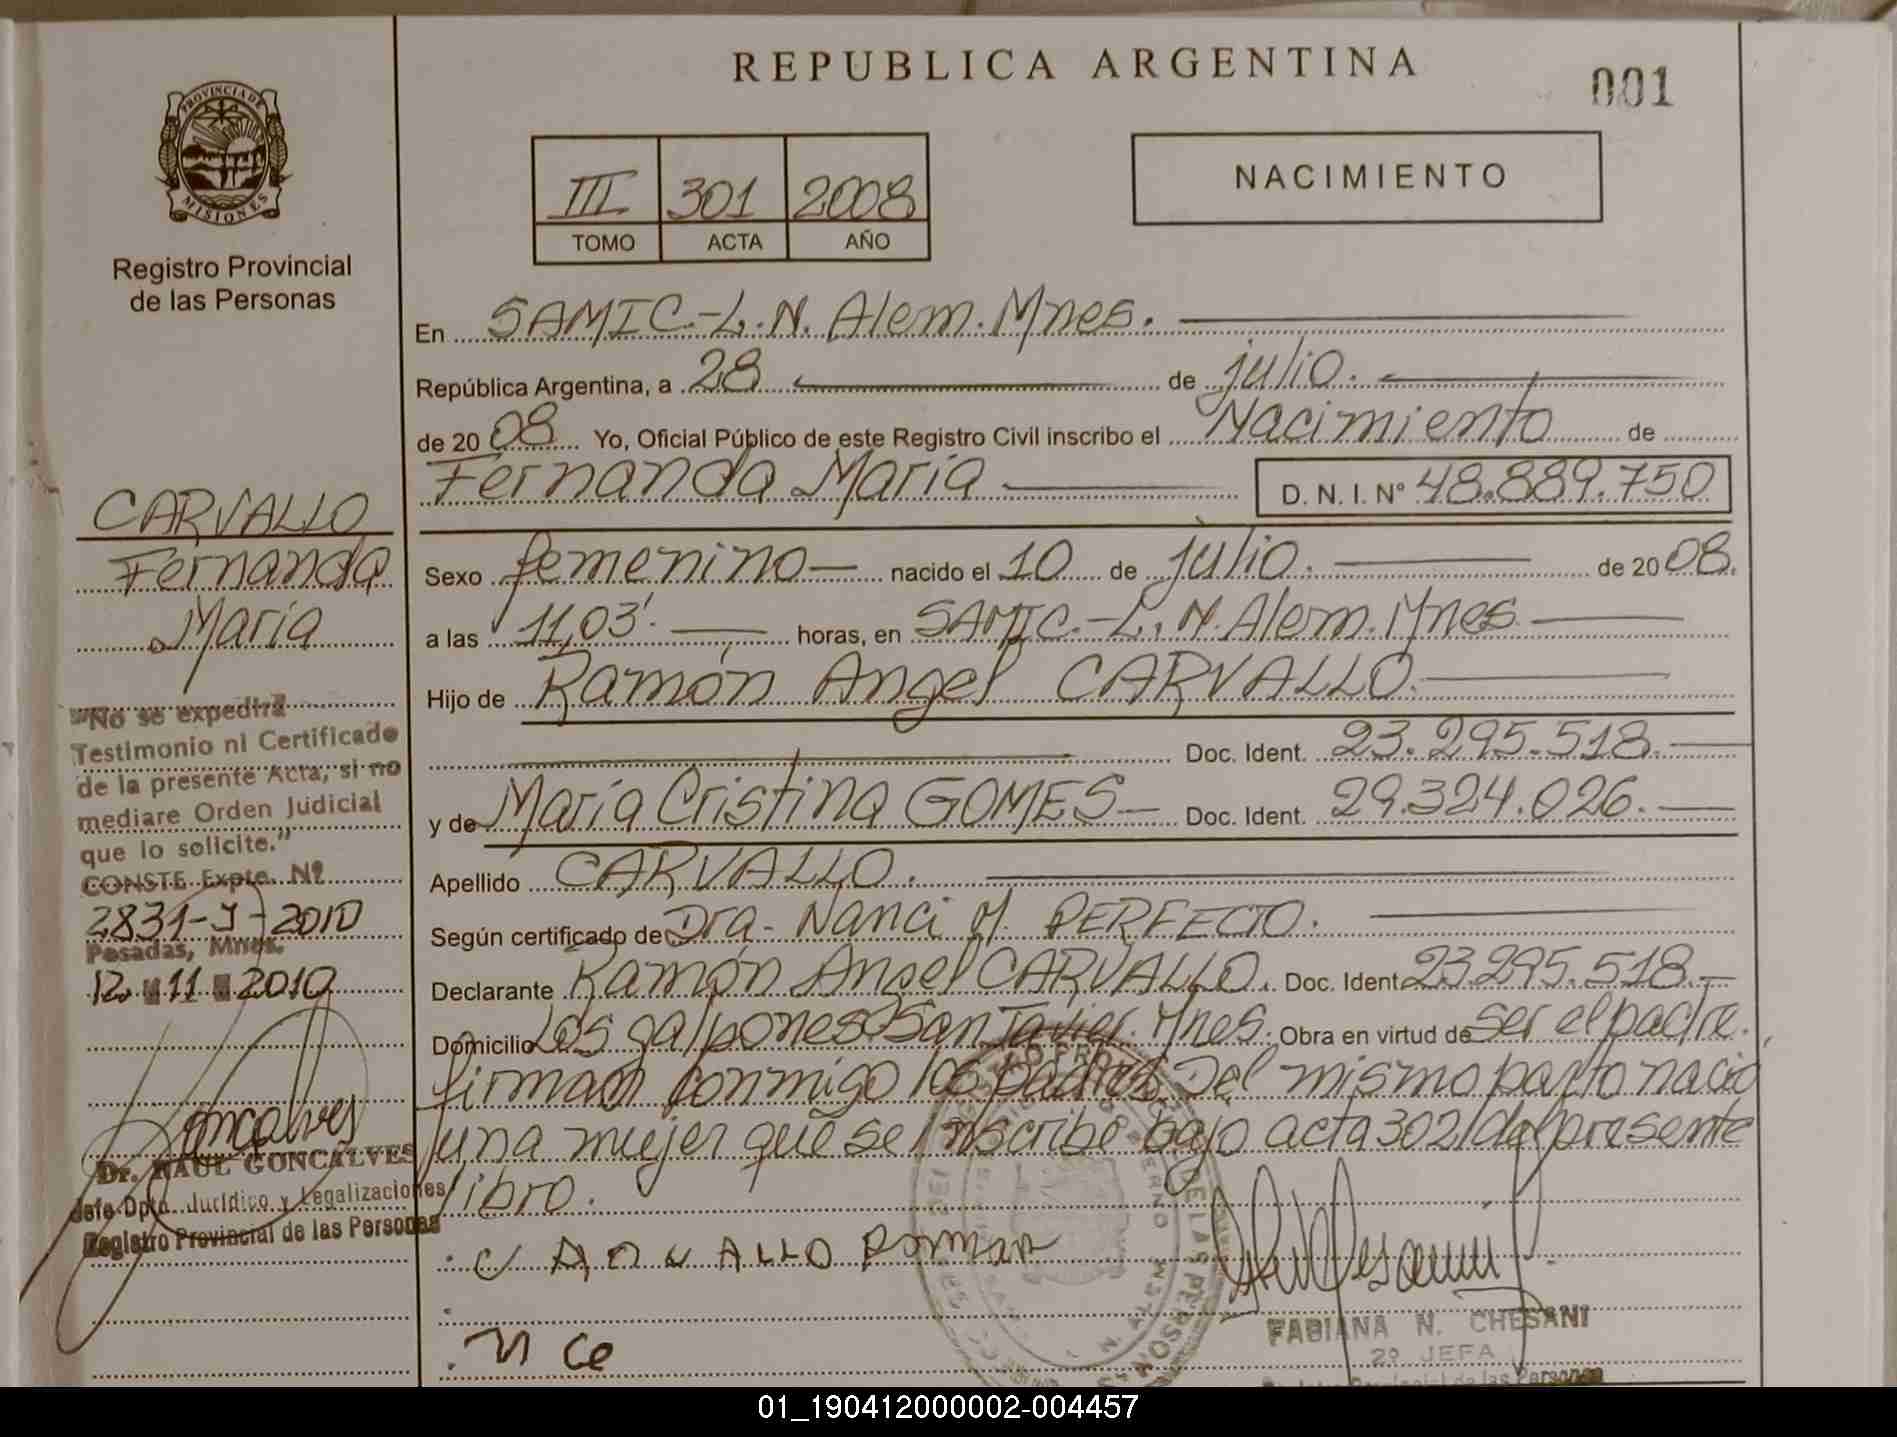 REPUBLICA ARGENTINA
001
PROVINCIA DE
MISIONES
Registro Provincial
de las Personas
III 301 2008
TOMO ACTA AÑO
NACIMIENTO
En SAMIC.-L.N. Alem. Mnes.
República Argentina, a 28 de julio.
de 2008 Yo, Oficial Público de este Registro Civil inscribo el Nacimiento de
Fernanda María D. N. I. Nº 48.889.750
Sexo femenino nacido el 10 de julio. de 2008.
a las 11,03'. horas, en SAMIC.-L.N. Alem. Mnes.
Hijo de Ramón Angel CARVALLO.
Doc. Ident. 23.295.518.
y de María Cristina GOMES Doc. Ident. 29.324.026.
Apellido CARVALLO.
Según certificado de Dra. Nanci M. PERFECTO.
Declarante Ramón Angel CARVALLO. Doc. Ident. 23.295.518.
Domicilio Los galpones San Javier. Mnes. Obra en virtud de ser el padre.
firman conmigo los padres. Del mismo parto nació
una mujer que se inscribe bajo acta 302 del presente
libro.
CARVALLO
Fernanda
María
"No se expedirá
Testimonio ni Certificado
de la presente Acta, si no
mediare Orden Judicial
que lo solicite."
CONSTE Expte. Nº
2831-J-2010
Posadas, Mnes.
12 11 2010
Goncalves
Dr. RAUL GONCALVES
Jefe Dpto. Jurídico y Legalizaciones
Registro Provincial de las Personas
CARVALLO Ramon
FABIANA N. CHESANI
2º JEFA
Provincial de las Personas
01_190412000002-004457